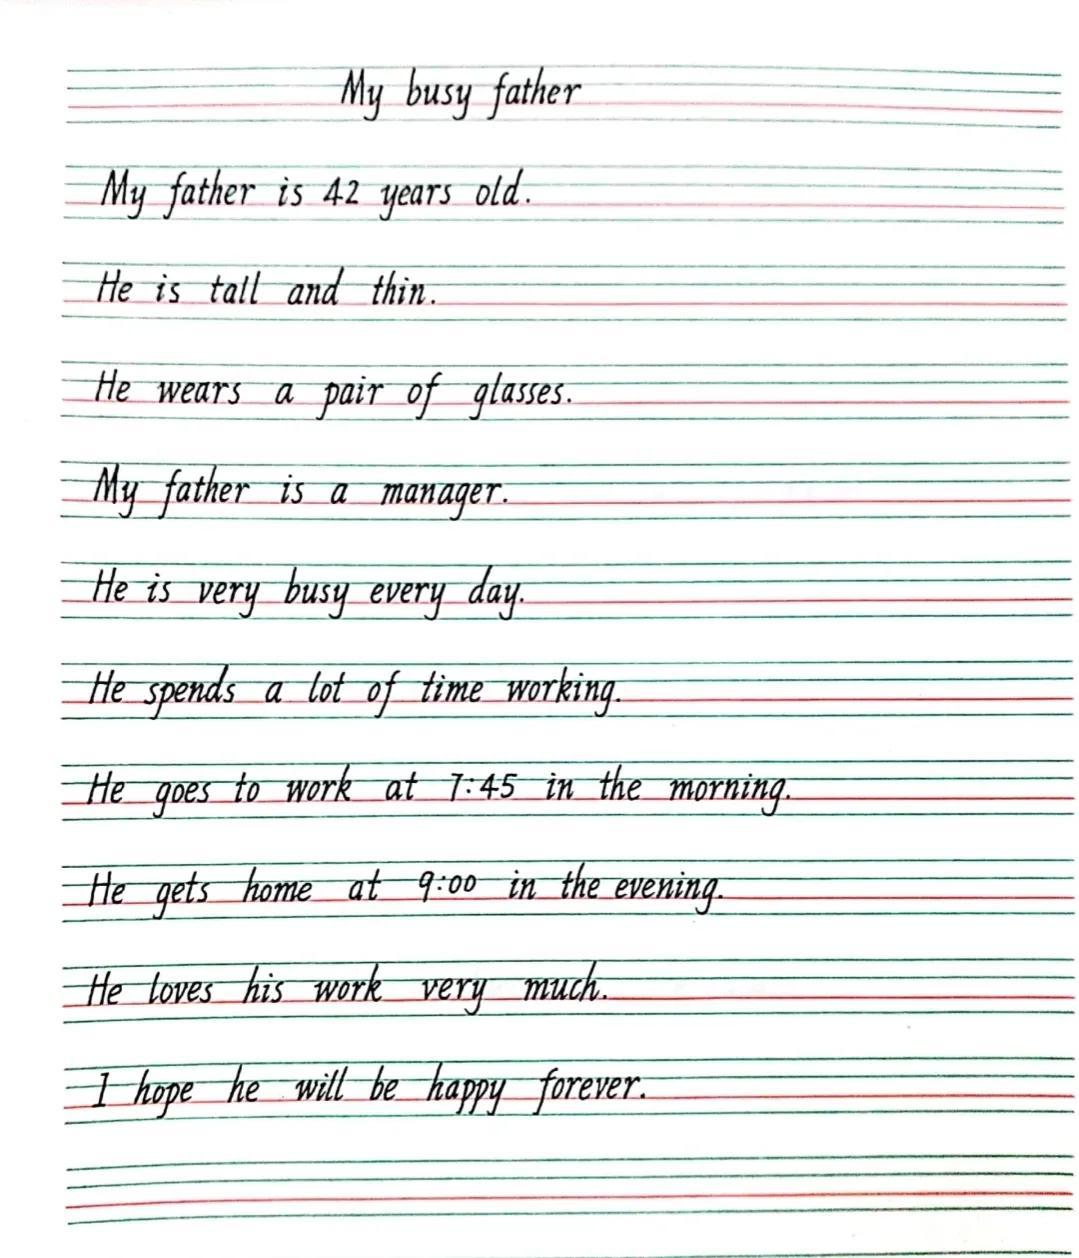 My busy father
My father is 42 years old.
He is tall and thin.
He wears a pair of glasses.
My father is a manager.
He is very busy every day.
He spends a lot of time working.
He goes to work at 7:45 in the morning.
He gets home at 9:00 in the evening.
He loves his work very much.
I hope he will be happy forever.